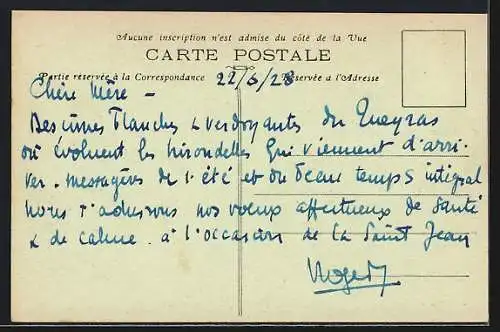 Aucune inscription n'est admise du côté de la Vue
CARTE POSTALE
Partie réservée à la Correspondance
Réservée à l'Adresse
22/6/28
Chère Mère -
Des cimes blanches & verdoyantes du Queyras
où évoluent les hirondelles qui viennent d'arri-
ver - messagères de l'été et du beau temps intégral
nous t'adressons nos voeux affectueux de santé
& de calme à l'occasion de la Saint Jean